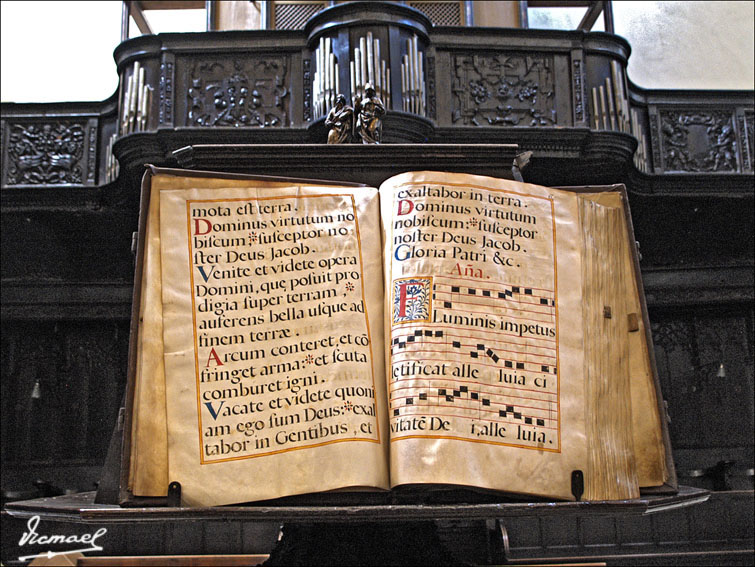 mota eſt terra.
Dominus virtutum no
biſcum: ſuſceptor no
ſter Deus Jacob.
Venite et videte opera
Domini, que poſuit pro
digia ſuper terram,
auferens bella uſque ad
finem terræ.
Arcum conteret, et cõ
fringet arma: et ſcuta
comburet igni.
Vacate et videte quoni
am ego ſum Deus: exal
tabor in Gentibus, et
exaltabor in terra.
Dominus virtutum
nobiſcum: ſuſceptor
noſter Deus Jacob.
Gloria Patri &c.
Aña.
F
Luminis impetus
lętificat alle luia ci
vitatẽ De i, alle luia.
Vicmael